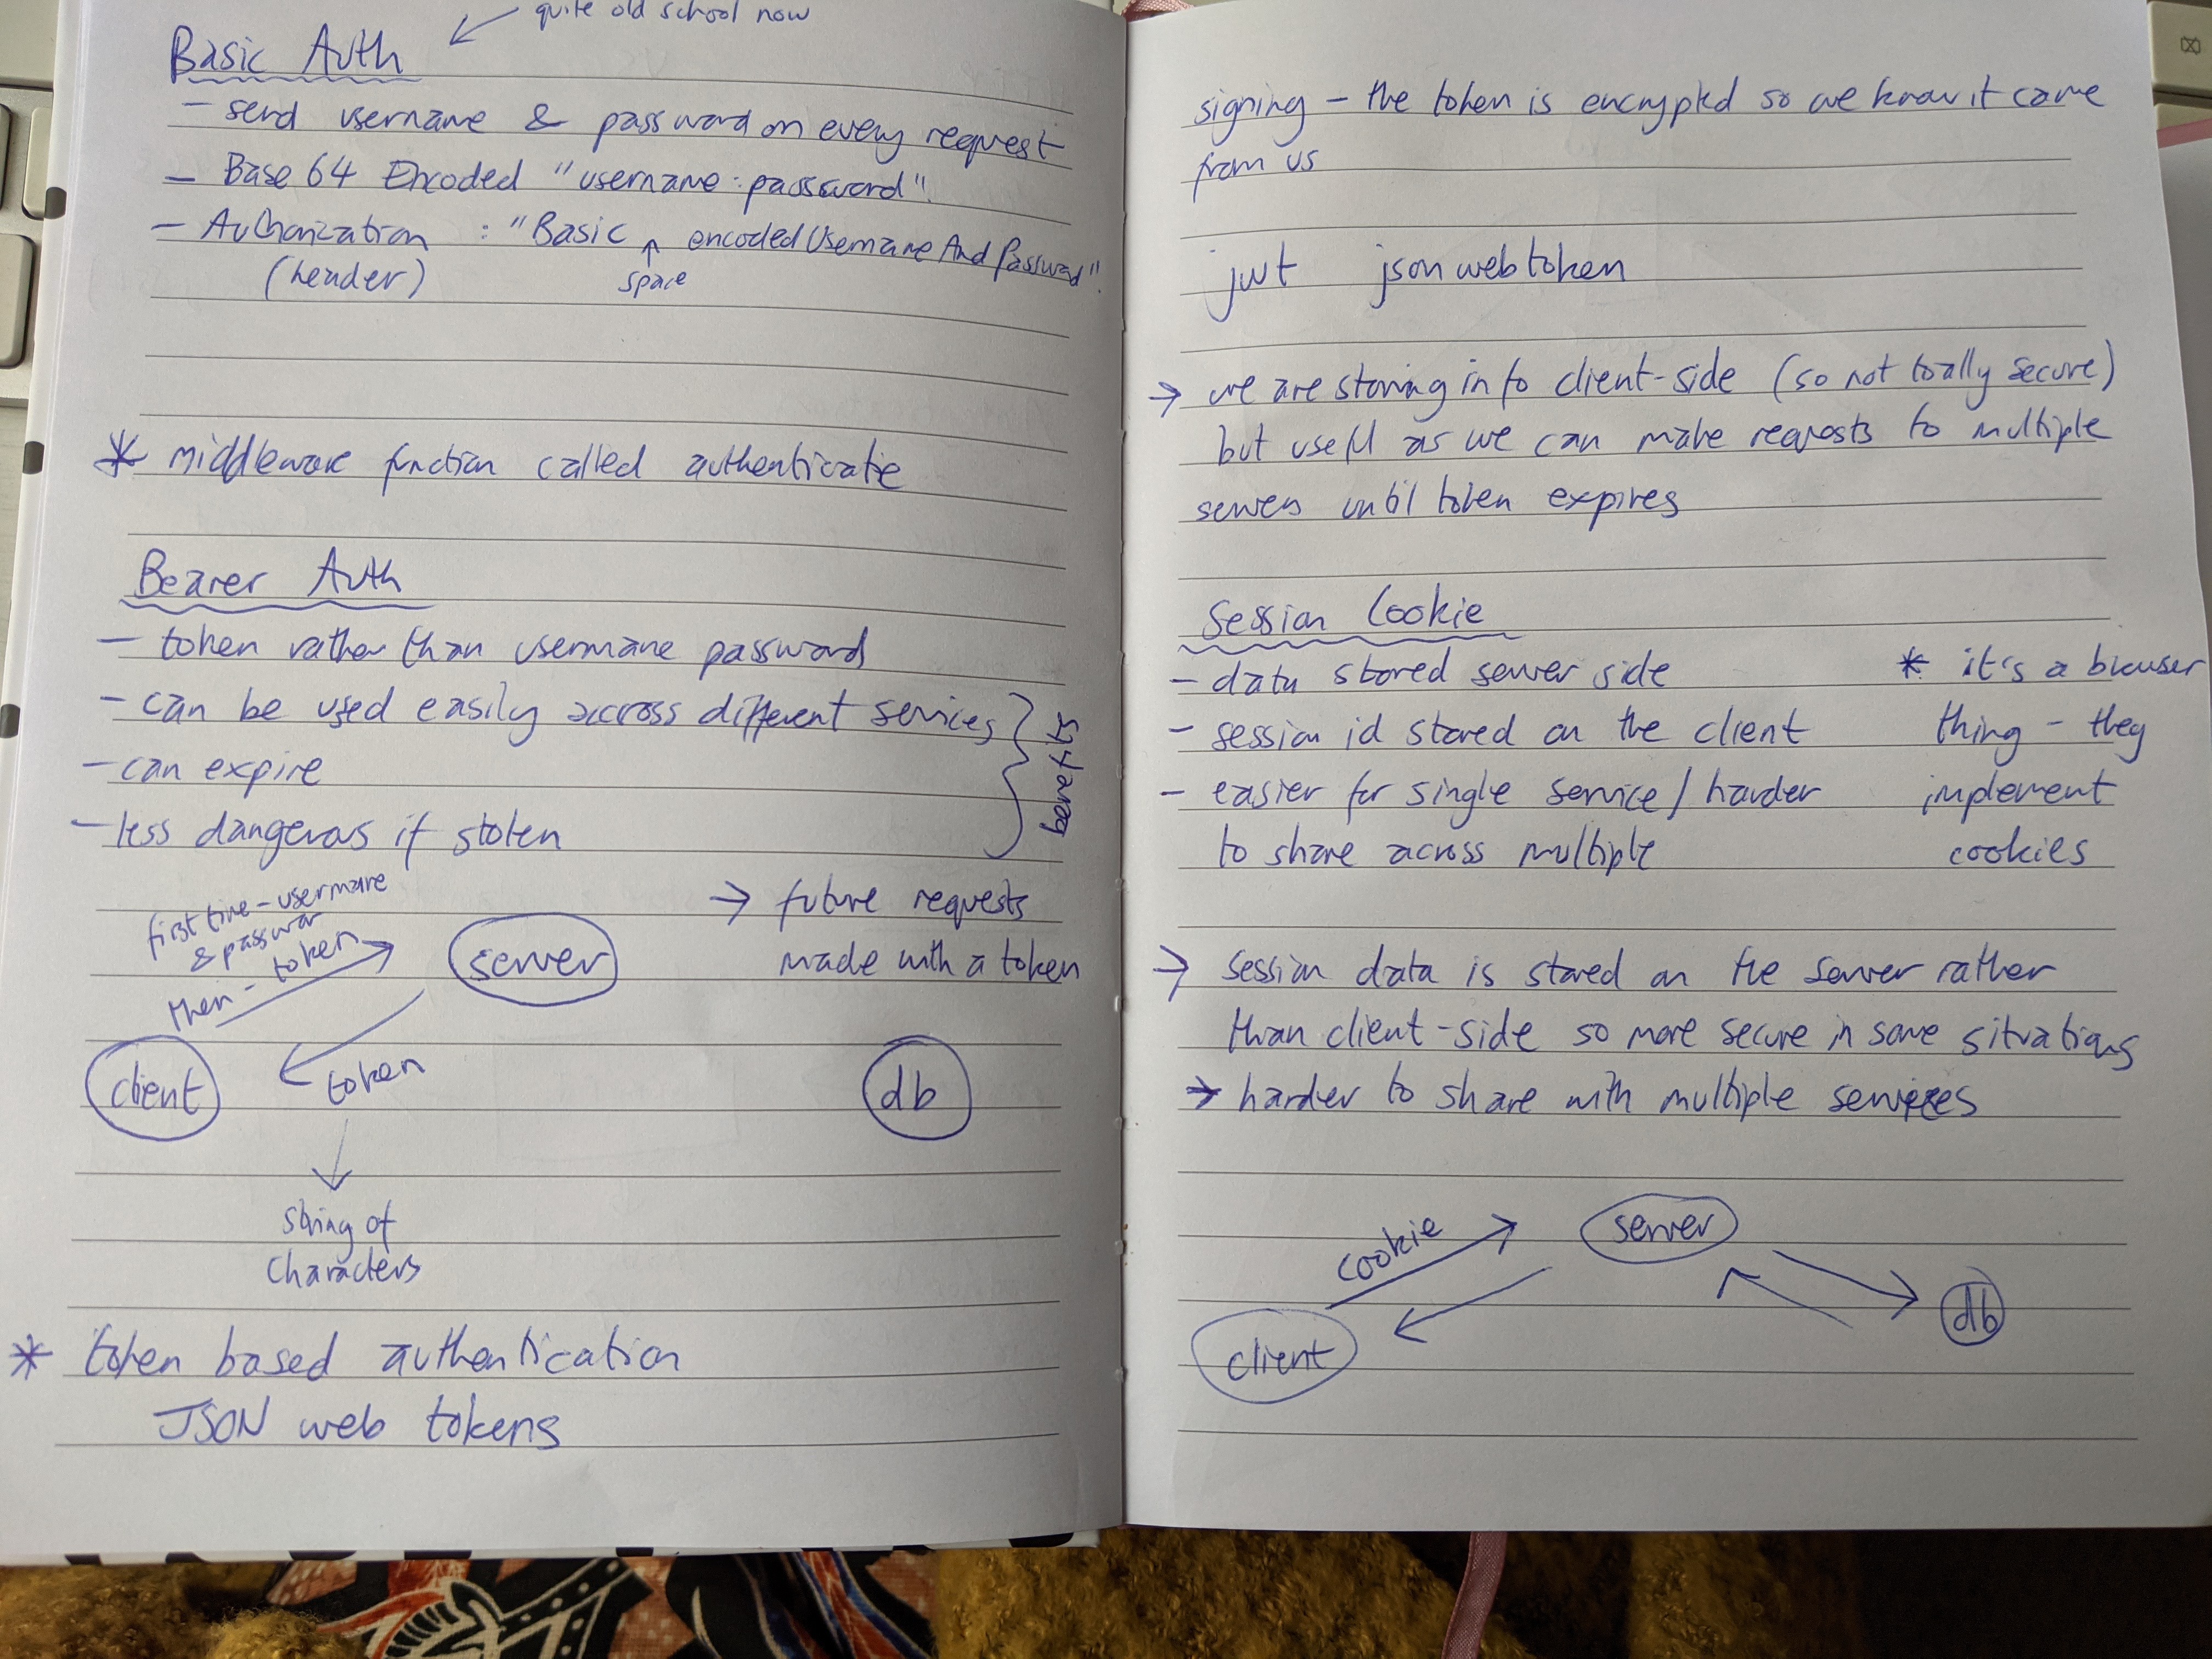 quite old school now
Basic Auth
- send username & password on every request
- Base 64 Encoded "username:password".
- Authorization : "Basic encodedUsernameAndPassword".
(header)
space
* middleware function called authenticate
Bearer Auth
- token rather than username password
- can be used easily accross different services
- can expire
- less dangerous if stolen
benefits
first time - username
& password
then - token
server
→ future requests
made with a token
client
token
db
string of
characters
* token based authentication
JSON web tokens
signing - the token is encrypted so we know it came
from us
jwt jsonwebtoken
→ we are storing info client-side (so not totally secure)
but useful as we can make requests to multiple
servers until token expires
Session Cookie
- data stored server side
- session id stored on the client
- easier for single service / harder
to share across multiple
* it's a browser
thing - they
implement
cookies
→ session data is stored on the server rather
than client-side so more secure in some situations
→ harder to share with multiple services
cookie
server
client
db